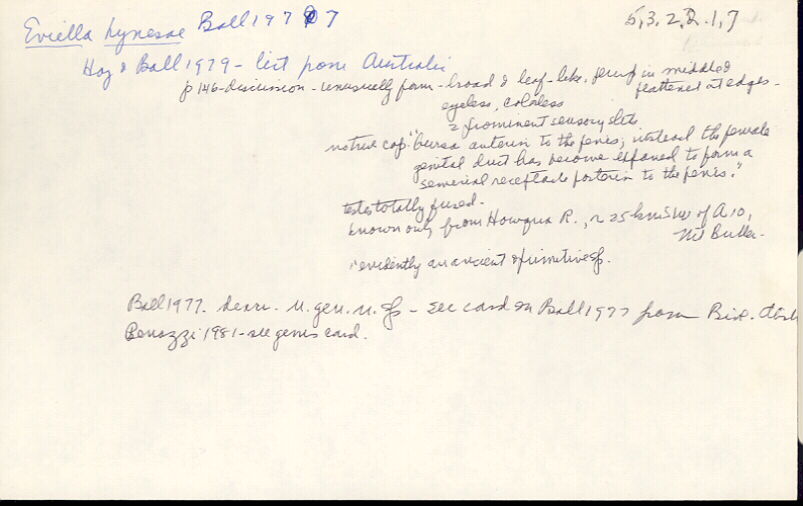 5,3.2.2.1,7
Eviella hynesae Ball 1977
Hay & Ball 1979 - list from Australia
p 146 - discussion - unusually form - broad & leaf-like, plump in middle &
flattened at edges -
eyeless, colorless
2 prominent sensory slits
no true cop. "bursa anterior to the penis; instead the female
genital duct has become expanded to form a
seminal receptacle posterior to the penis."
testes totally fused.
known only from Howqua R., ~ 25 km SW of A 10,
Mt Buller.
"evidently an ancient & primitive sp.
Ball 1977. descr. n. gen. n. sp - see card on Ball 1977 from Biol.
Benazzi 1981 - see genus card.